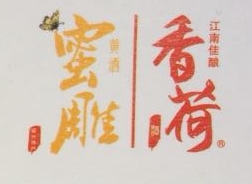 蜜雕
黄酒
香荷
江南佳酿
®